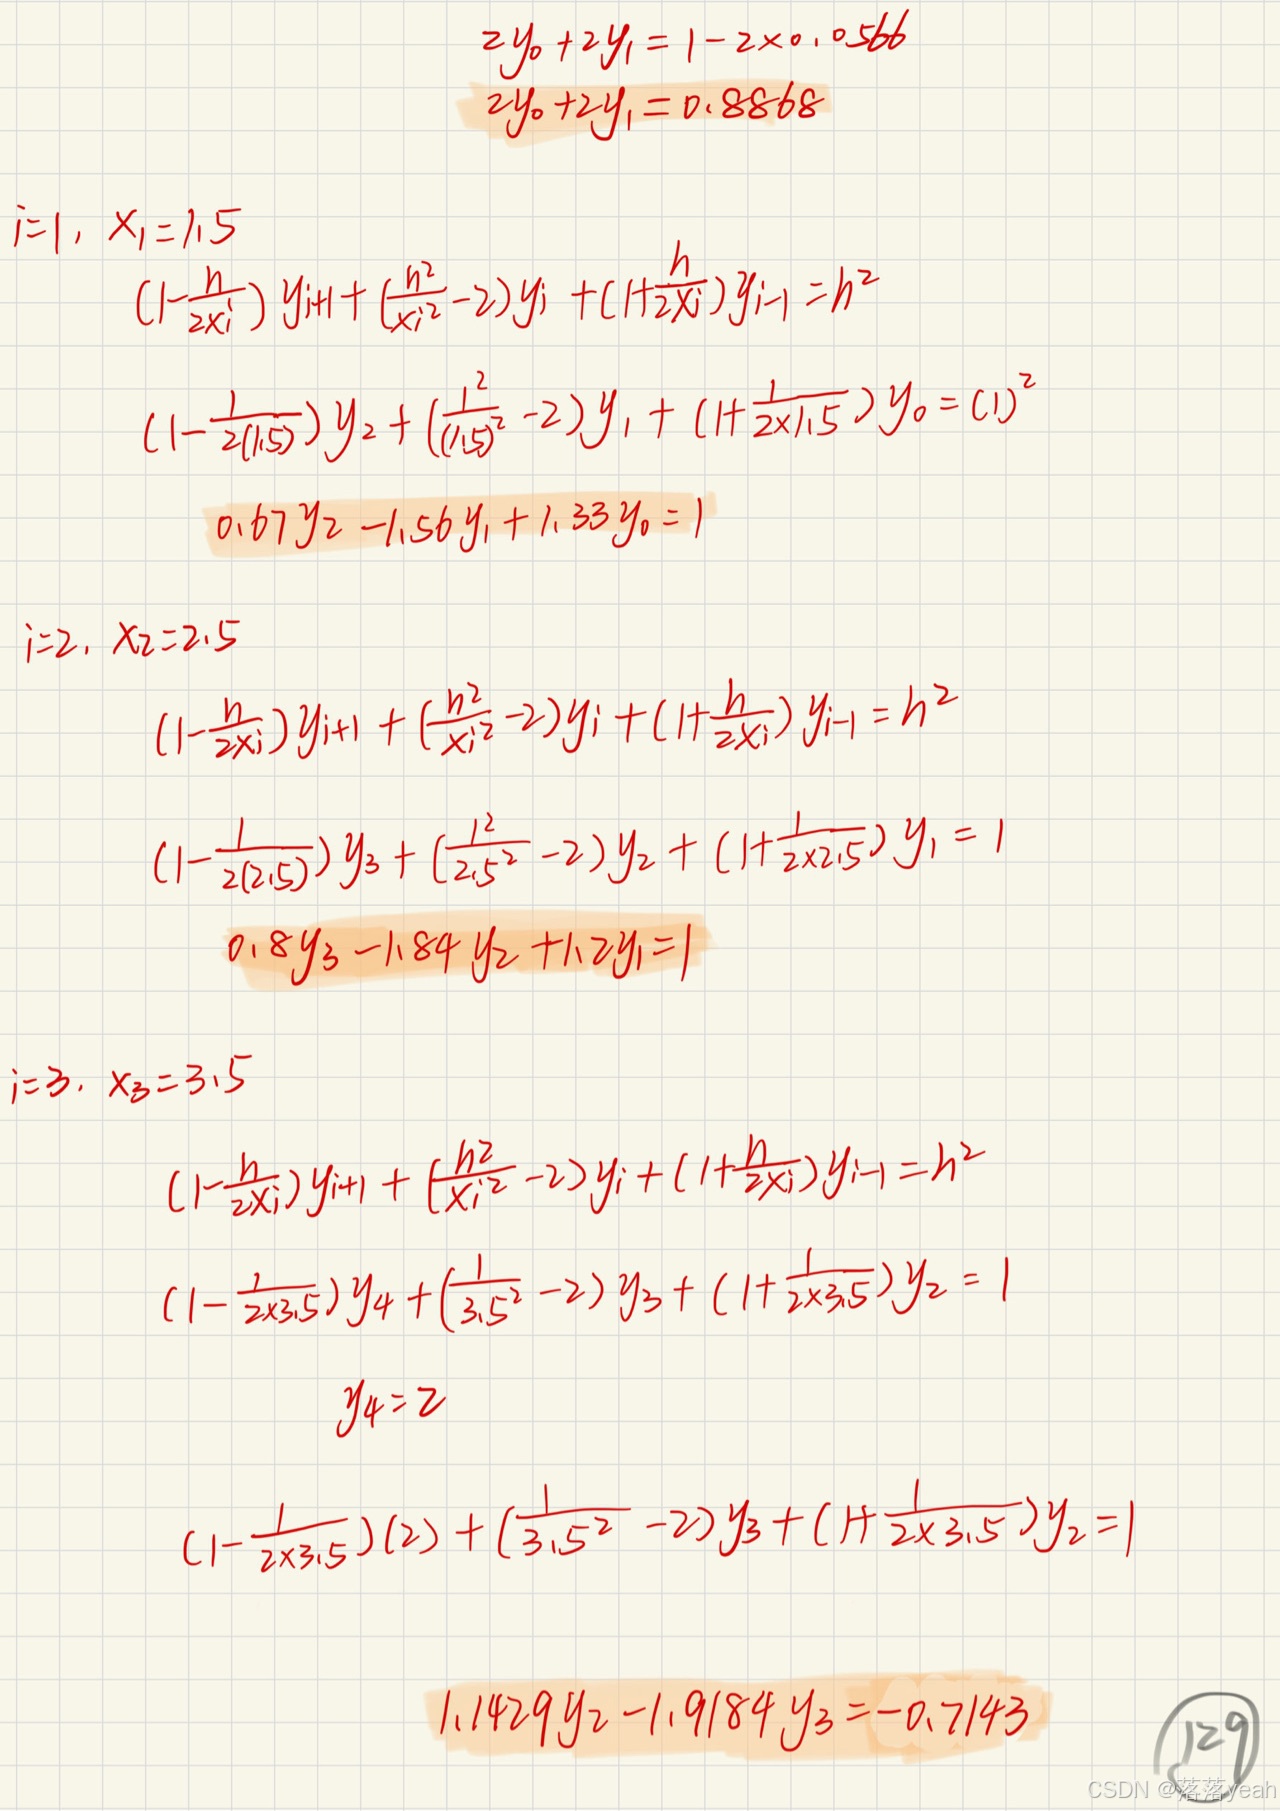 2y₀+2y₁=1-2×0.0566
2y₀+2y₁=0.8868
i=1, x₁=1.5
(1-h/2xᵢ)yᵢ₊₁+(h²/xᵢ²-2)yᵢ+(1+h/2xᵢ)yᵢ₋₁=h²
(1-1/2(1.5))y₂+(1²/(1.5)²-2)y₁+(1+1/2×1.5)y₀=(1)²
0.67y₂-1.56y₁+1.33y₀=1
i=2, x₂=2.5
(1-h/2xᵢ)yᵢ₊₁+(h²/xᵢ²-2)yᵢ+(1+h/2xᵢ)yᵢ₋₁=h²
(1-1/2(2.5))y₃+(1²/2.5²-2)y₂+(1+1/2×2.5)y₁=1
0.8y₃-1.84y₂+1.2y₁=1
i=3, x₃=3.5
(1-h/2xᵢ)yᵢ₊₁+(h²/xᵢ²-2)yᵢ+(1+h/2xᵢ)yᵢ₋₁=h²
(1-1/2×3.5)y₄+(1/3.5²-2)y₃+(1+1/2×3.5)y₂=1
y₄=2
(1-1/2×3.5)(2)+(1/3.5²-2)y₃+(1+1/2×3.5)y₂=1
1.1429y₂-1.9184y₃=-0.7143
129
CSDN @落落yeah